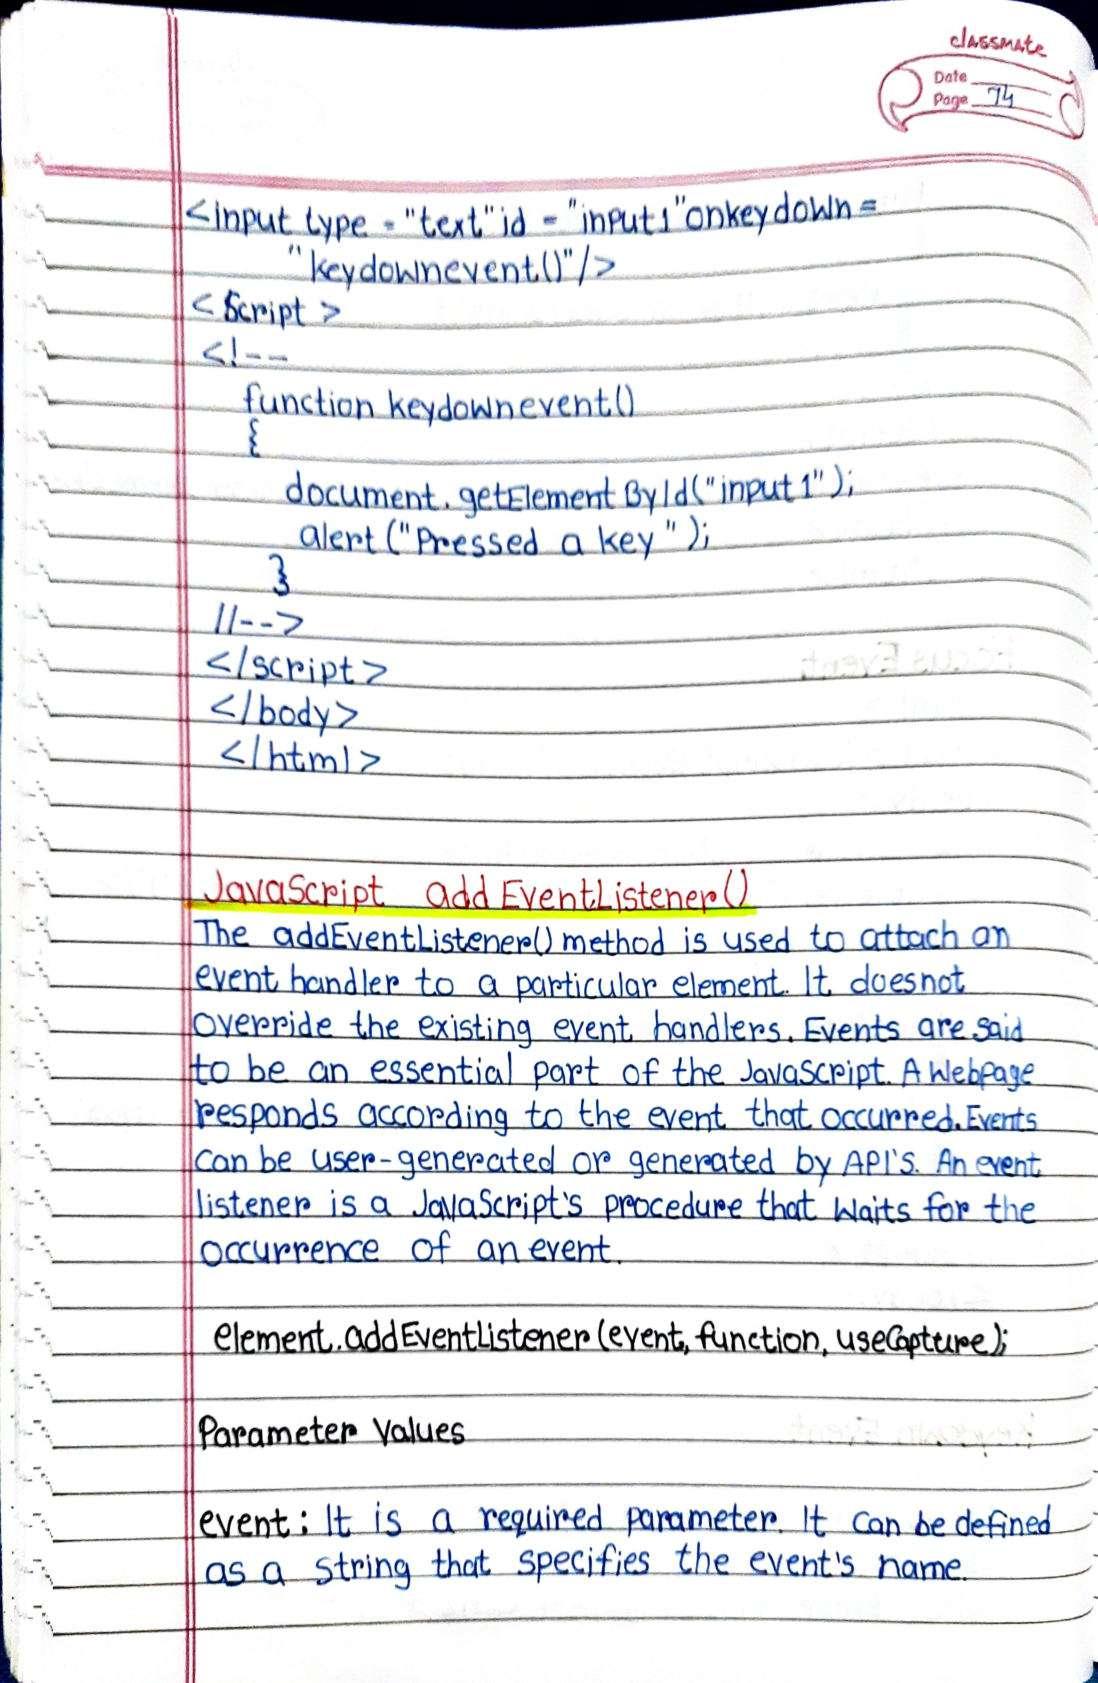 classmate
Date
Page 74
<input type = "text" id = "input1" onkeydown =
"keydownevent()"/>
<Script>
<!--
function keydownevent()
{
document.getElementById("input1");
alert("Pressed a key");
}
//-->
</script>
</body>
</html>
JavaScript addEventListener()
The addEventListener() method is used to attach an
event handler to a particular element. It doesnot
override the existing event handlers. Events are said
to be an essential part of the JavaScript. A Webpage
responds according to the event that occurred. Events
can be user-generated or generated by API'S. An event
listener is a JavaScript's procedure that waits for the
occurrence of an event.
element.addEventListener(event, function, useCapture);
Parameter Values
event: It is a required parameter. It can be defined
as a string that specifies the event's name.